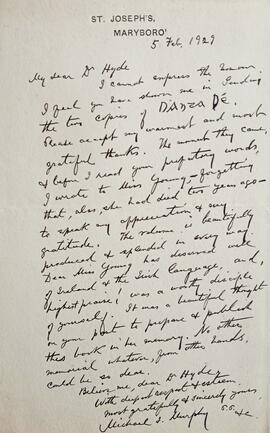 ST. JOSEPH'S,
MARYBORO'
5 Feb. 1929
My dear Dr Hyde
I cannot express the honour
I feel you have shown me in sending
the two copies of Dánta Dé.
Please accept my warmest and most
grateful thanks. The moment they came,
& before I read your prefatory words,
I wrote to Miss Young — forgetting
that, alas, she had died two years ago —
to speak my appreciation & my
gratitude. The volume is beautifully
produced & splendid in every way.
Dear Miss Young has deserved well
of Ireland & the Irish Language, and,
highest praise, was a worthy disciple
of yourself. It was a beautiful thought
on your part to prepare & publish
this book in her memory. No other
memorial whatever, from other hands,
could be so dear.
Believe me, dear Dr Hyde,
With deepest respect & esteem
most gratefully & sincerely yours,
Michael J. Murphy